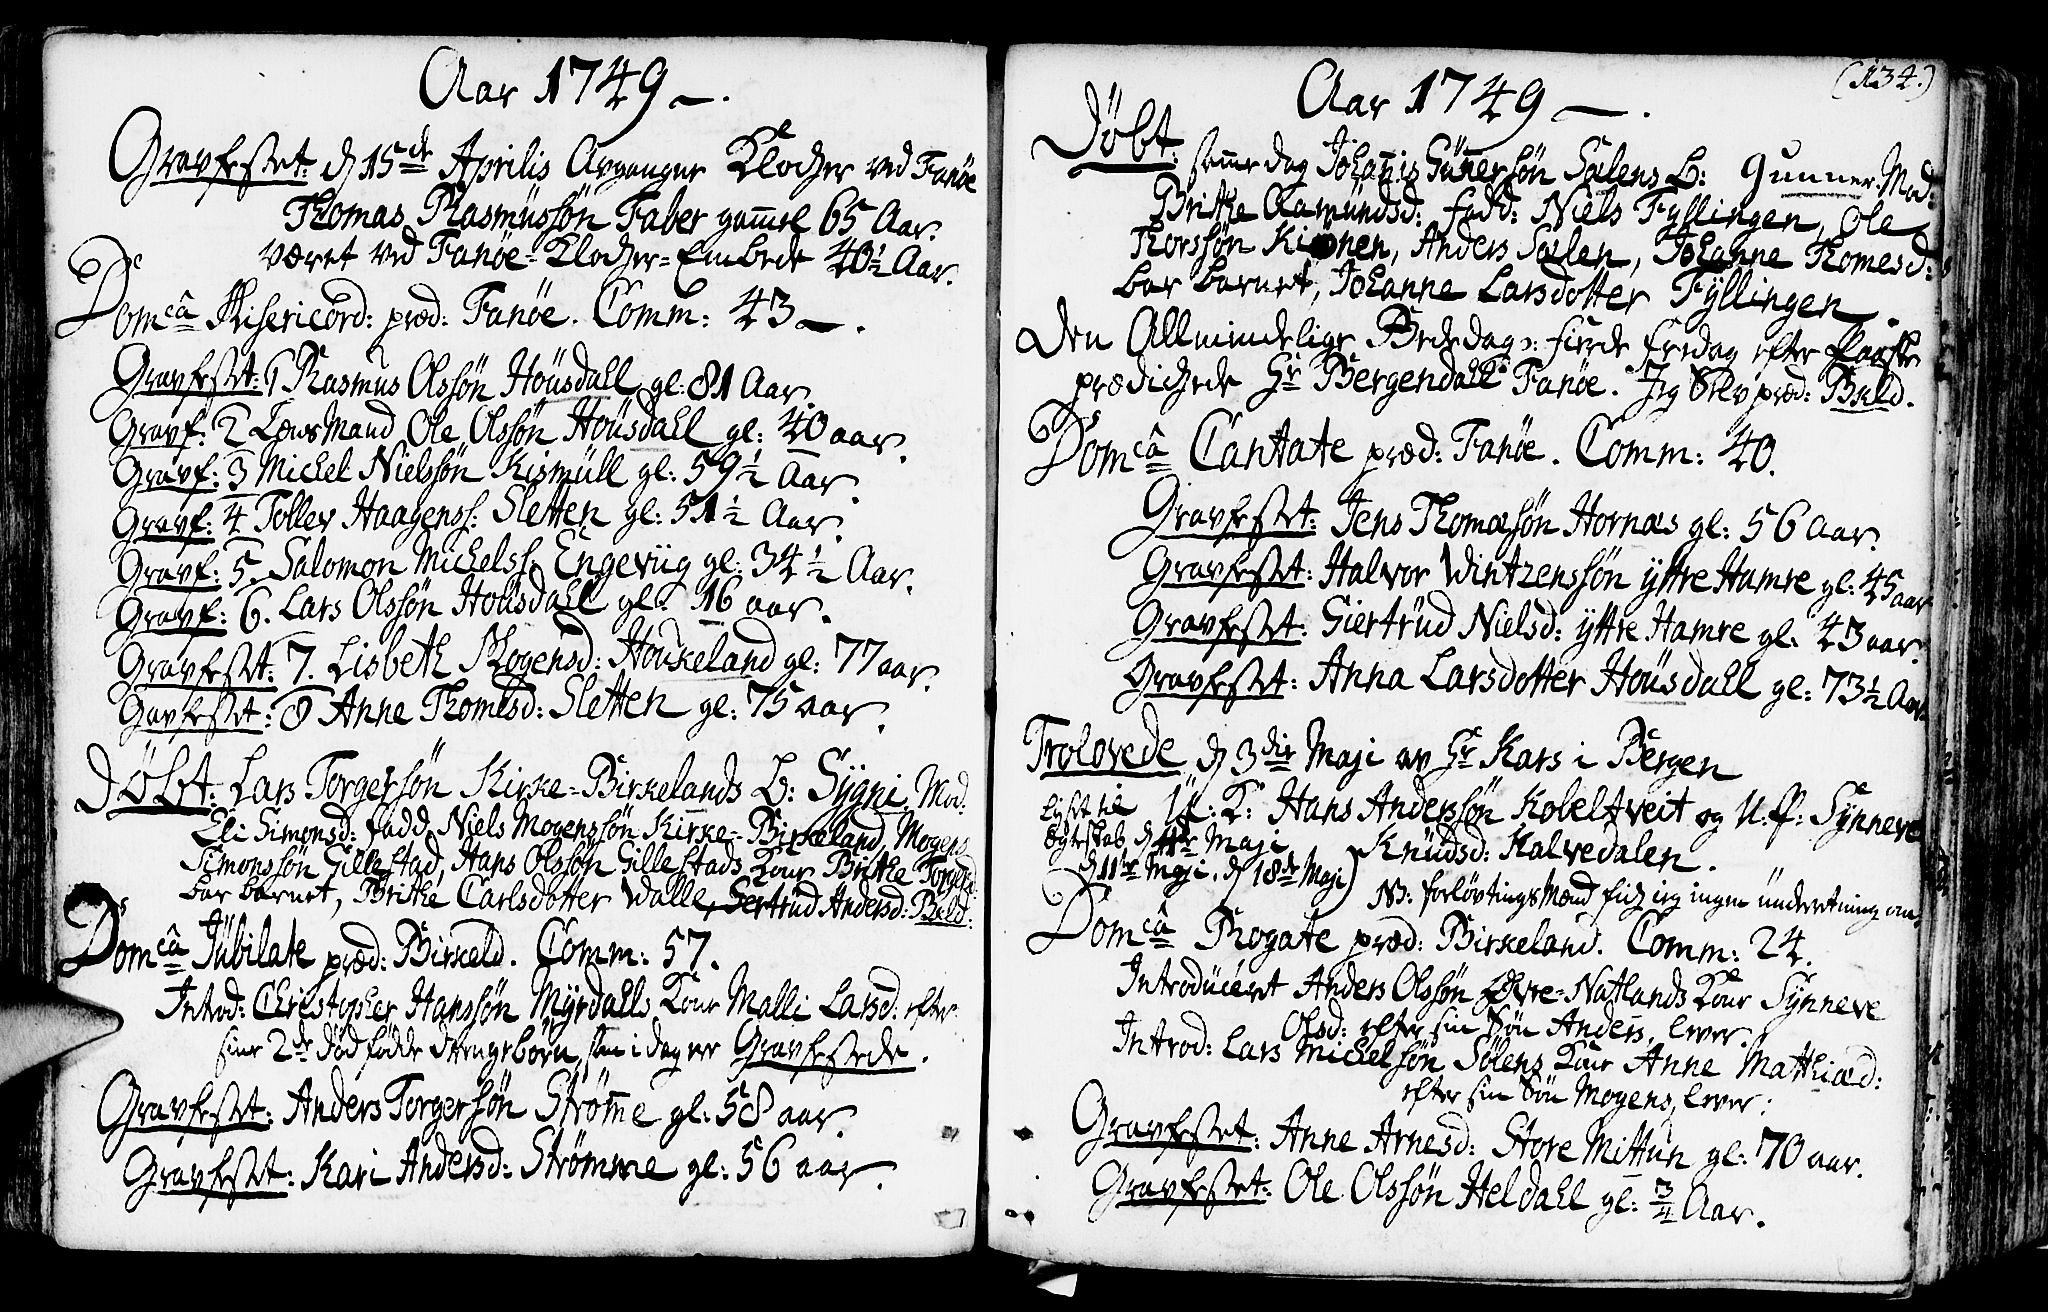 Aar 1749 —.
Gravfestet: d 15de Aprilis Avgangne Klocher ved Fanöe
Thomas Rasmüssøn Faber gam̄el 65 Aar.
været ved Fanöe-Klocher-Embede 40½ Aar.
Domcâ Misericord: præd: Fanöe. Comm: 43 —.
Gravfestet: 1 Rasmus Olssøn Hoüsdall gl: 81 Aar.
Gravf: 2 Læns Mand Ole Olssøn Hoüsdall gl: 40 aar.
Gravf: 3 Michel Nielssøn Kismüll gl: 59½ Aar.
Gravf: 4 Tollev Haagenss: Sletten gl: 51½ Aar.
Gravf: 5. Salomon Michelss: Engeviig gl: 34½ Aar.
Gravf: 6. Lars Olssøn Hoüsdall gl: 16 aar.
Gravfestet: 7. Lisbeth Mogensd: Houkeland gl: 77 aar.
Gavfestet: 8 Anne Thomesd: Sletten gl: 75 aar.
Døbt: Lars Torgersøn Kirke-Birkelands B: Sygni, Mod.
Eli Simonsd: fadd, Niels Mogenssøn Kirke-Birkeland, Mogens
Simonssøn Gillestad, Hans Olssøn Gillestads Kone Brithe Torgersd:
bar barnet, Brithe Carlsdotter Walle, Gertrud Andersd: Bkld:
Domcâ Jübilate præd: Birkeld. Comm: 57.
Introd: Christopher Hanssøn Myrdahls Kone Malli Larsd: efter
sine 2de død fødde drengebørn, som i dag er Gravfestede.
Gravfestet: Anders Torgersøn Strøm̄e gl: 58 aar.
Gravfestet: Kari Andersd: Strømme gl: 56 aar.
(134.)
Aar 1749 —.
Døbt: sam̄e dag Johan̄is Gün̄ersøn Sælens B: Gunner. Mod:
Brithe Aamundsd: fadd: Niels Fyllingen, Ole
Thorssøn Kiønen, Anders Sælen, Johanne Thomesd:
bar barnet, Johanne Larsdotter Fyllingen.
Den Allmindelige Bededag: fierde fredag efter Paaske
prædichede Hr Bergendahl Fanöe. Jeg Selv præd: Bkld.
Domcâ Cantate præd: Fanöe. Comm: 40.
Gravfestet: Jens Thomæsøn Hornæs gl: 56 aar.
Gravfestet: Halvor Wintzenssøn yttre Hamre gl: 45 aar
Gravfestet: Giertrüd Nielsd: yttre Hamre gl: 43 aar.
Gravfestet: Anna Larsdotter Hoüsdall gl: 73½ Aar
Trolovede d 3die Maji av Hr Kars i Bergen
Lyst til U: K: Hans Anderssøn Kobeltveit og U. ff: Synneve
Egteskab, d 4de Maji Knüdsd: Kalvedalen.
d 11te Maji, d 18de Maji) NB: forlovtings mænd fich ieg ingen ünderetning om,
Domcâ Rogate præd: Birkeland. Comm: 24.
Introducéret Anders Olssøn Øvre-Natlands Kone Synneve
Olsd: efter sin Søn Anders, lever.
Introd: Lars Michelsøn Sælens Kone Anne Matthiæd:
efter sin Søn Mogens, lever:
Gravfestet: Anne Arnesd: Store Mittun gl: 70 aar.
Gravfestet: Ole Olssøn Heldahl gl: ¾ Aar.